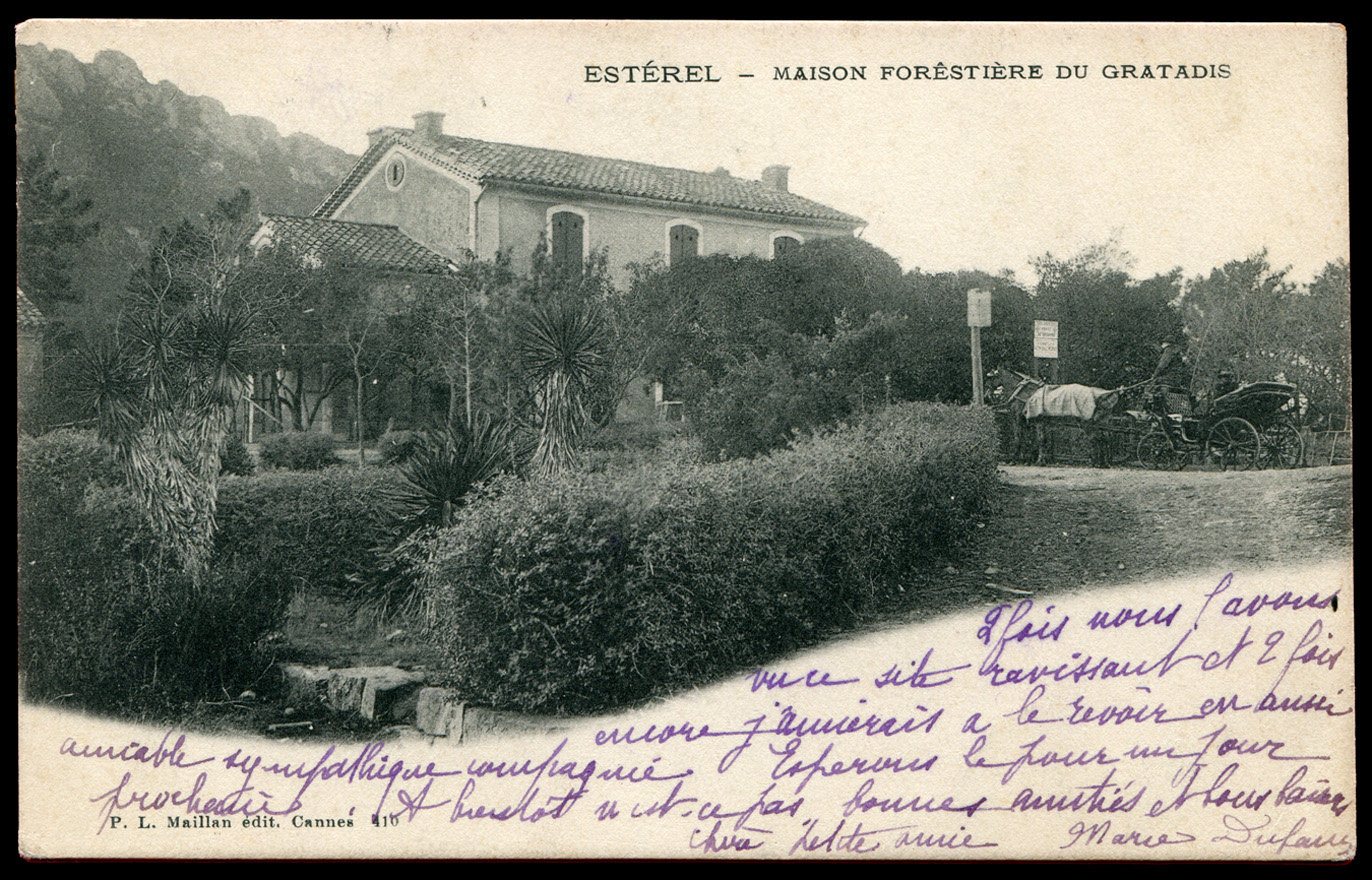 ESTÉREL — MAISON FORÊSTIÈRE DU GRATADIS
2 fois nous l'avons
vu ce site ravissant et 2 fois
encore j'aimerais a le revoir en aussi
aimable sympathique compagnie. Esperons le pour un jour
prochain. A bientôt n'est-ce pas bonnes amitiés et bons baisers
chère petite amie Marie
P. L. Maillan édit. Cannes 410